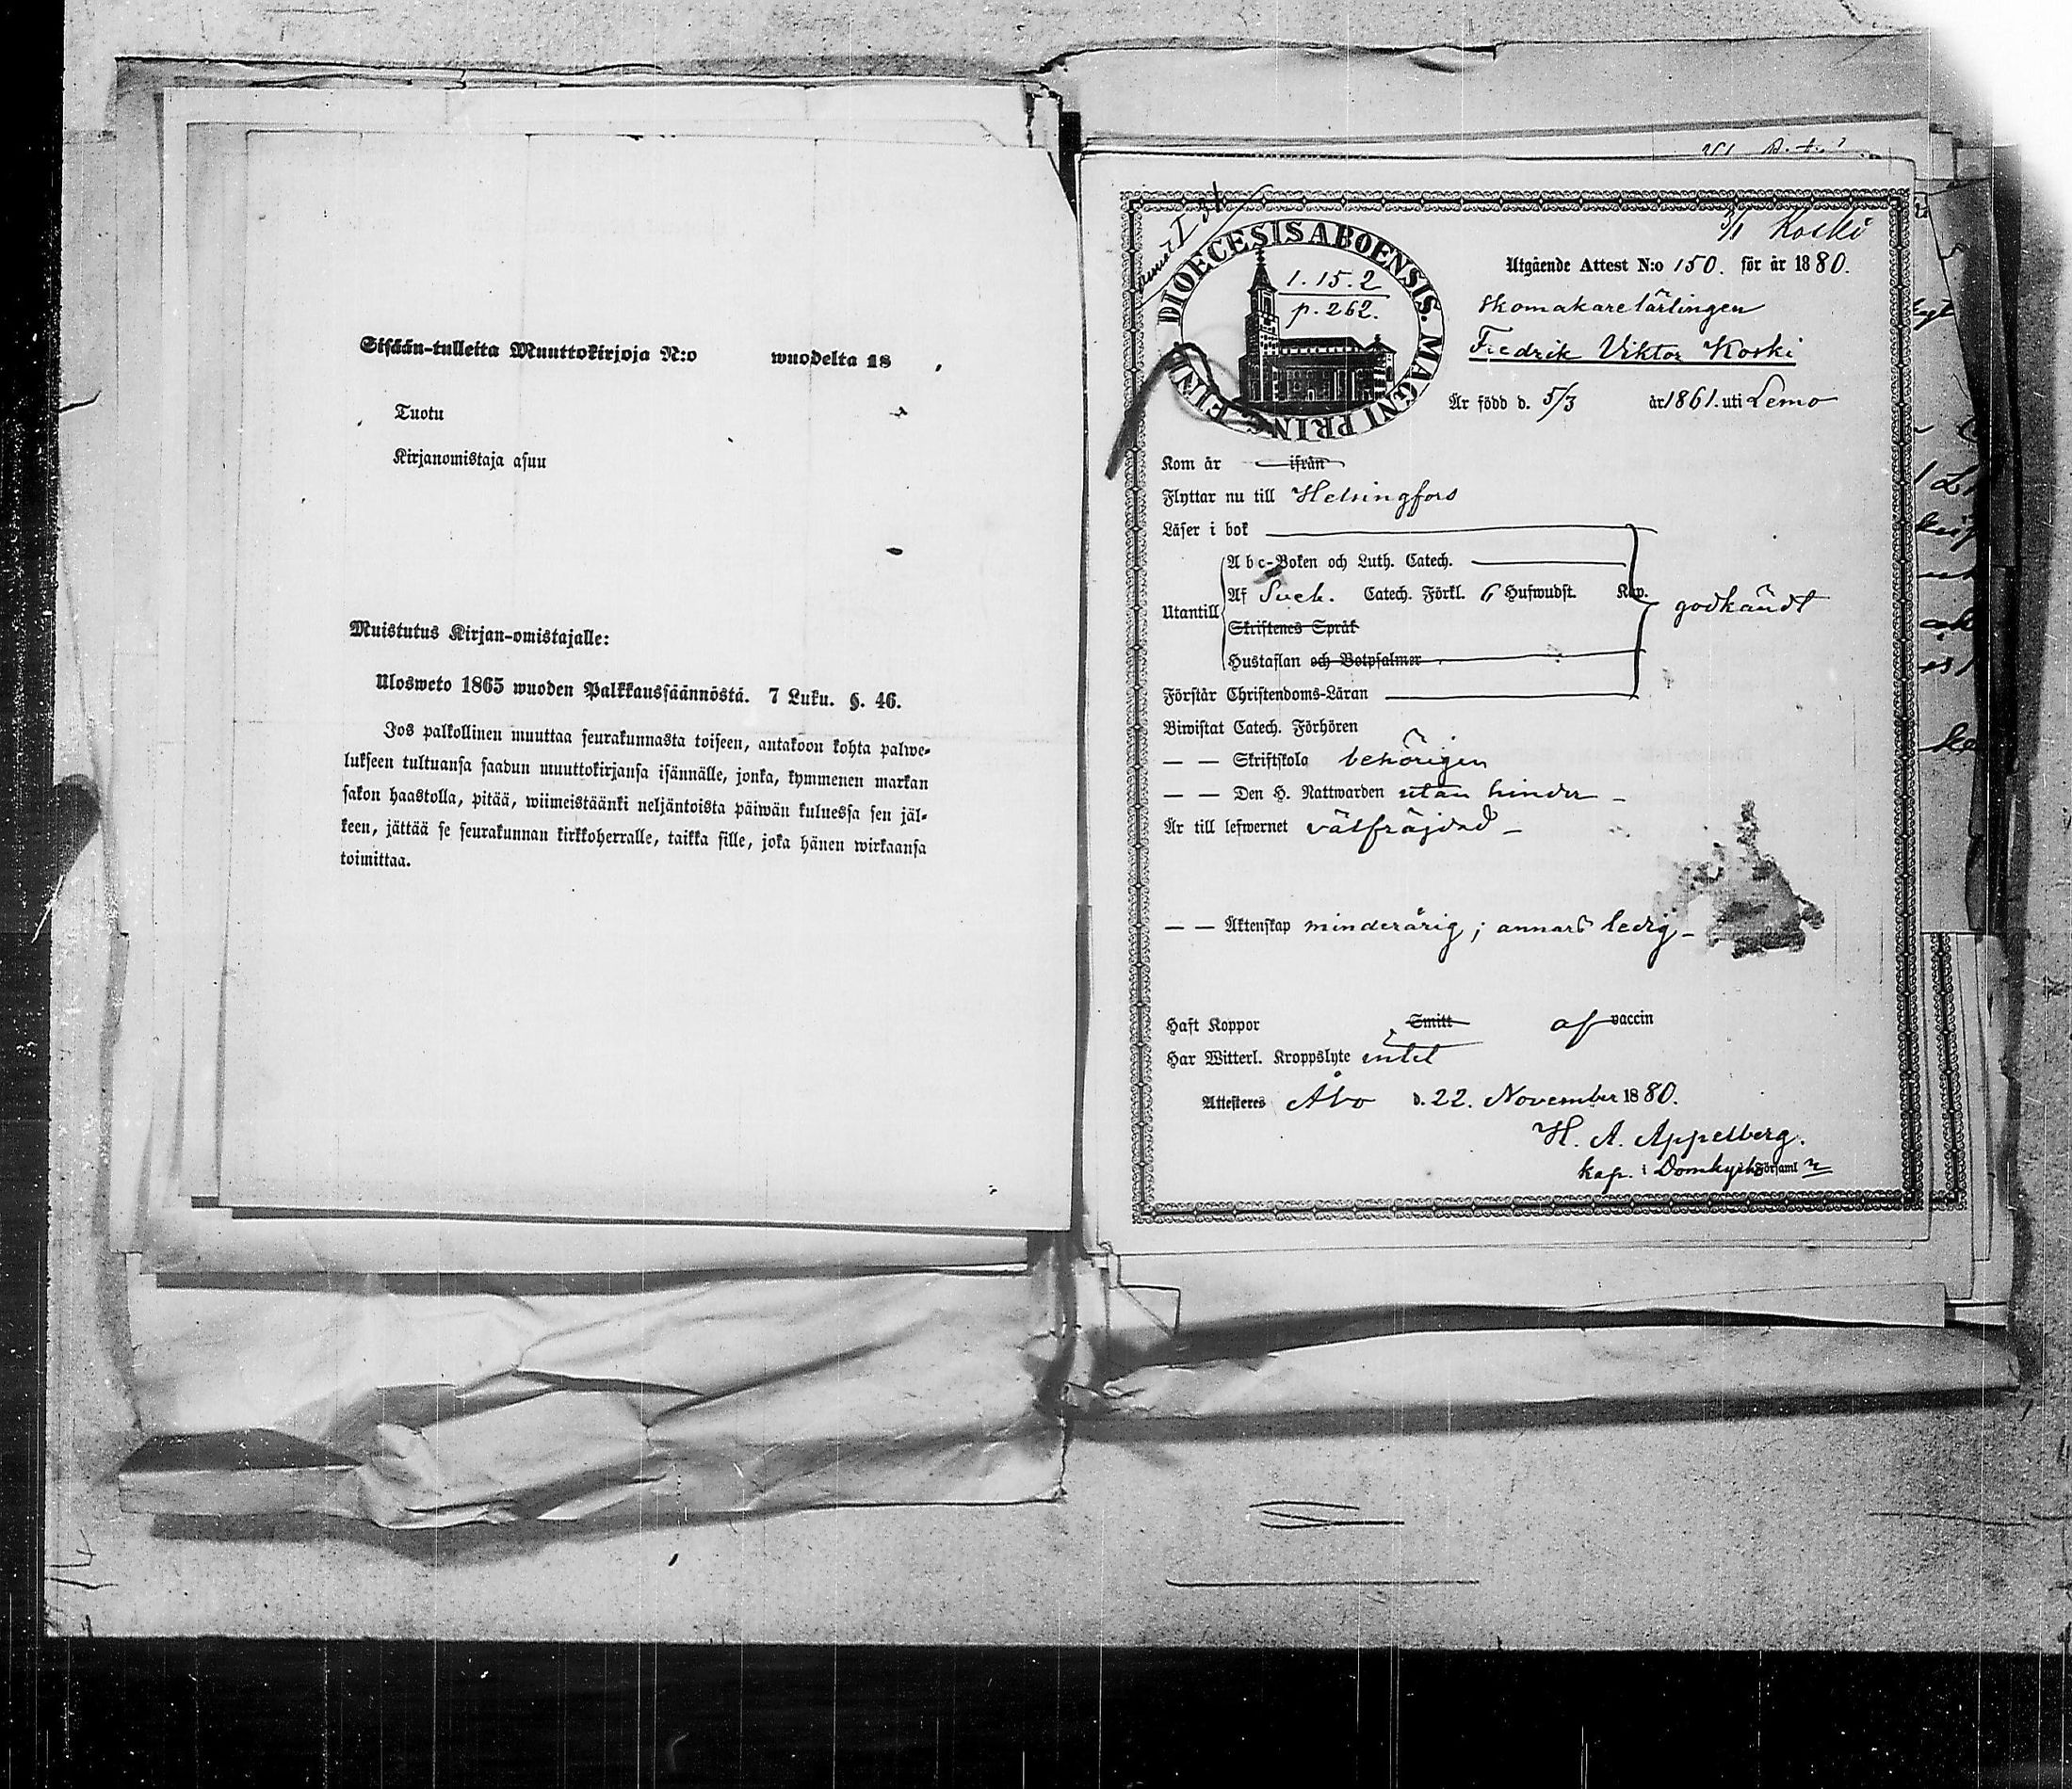 Sisään-tulleita Muuttokirjoja N:o wuodelta 18
Tuotu
Kirjanomistaja asuu
Muistutus Kirjan-omistajalle:
Ulosweto 1865 wuoden Palkkaussäännöstä. 7 Luku. §. 46.
Jos palkollinen muuttaa seurakunnasta toiseen, antakoon kohta palwe-
lukseen tultuansa saadun muuttokirjansa isännälle, jonka, kymmenen markan
sakon haastolla, pitää, wiimeistäänki neljäntoista päiwän kuluessa sen jäl-
keen, jättää se seurakunnan kirkkoherralle, taikka sille, joka hänen wirkaansa
toimittaa.
3/1 Koski
DIOECESIS ABOENSIS. MAGNI PRINC. FINL.
1.15.2
p. 262.
Utgående Attest N:o 150. för år 1880.
Skomakarelärlingen
Fredrik Viktor Koski
Är född d. 5/3 år 1861. uti Lemo
Kom år ifrån
Flyttar nu till Helsingfors
Läser i bok
Abc-Boken och Luth. Catech.
Utantill Af Sveb. Catech. Förkl. 6 Hufwudst. Kap. godkändt
Skriftenes Språk
Hustaflan och Botpsalmer
Förstår Christendoms-Läran
Biwistat Catech. Förhören
— — Skriftskola behörigen
— — Den H. Nattwarden utan hinder –
Är till lefwernet välfräjdad –
— — Äktenskap minderårig; annars ledig –
Haft Koppor Smitt af vaccin
Har Witterl. Kroppslyte intet
Attesteres Åbo d. 22. November 1880.
H. A. Appelberg.
kap. i Domkyrko Församl n